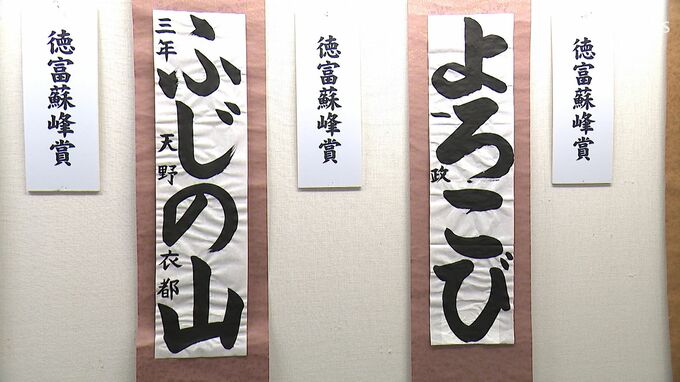 徳富蘇峰賞
よろこび
一 政
徳富蘇峰賞
ふじの山
三年 天野 衣都
徳富蘇峰賞